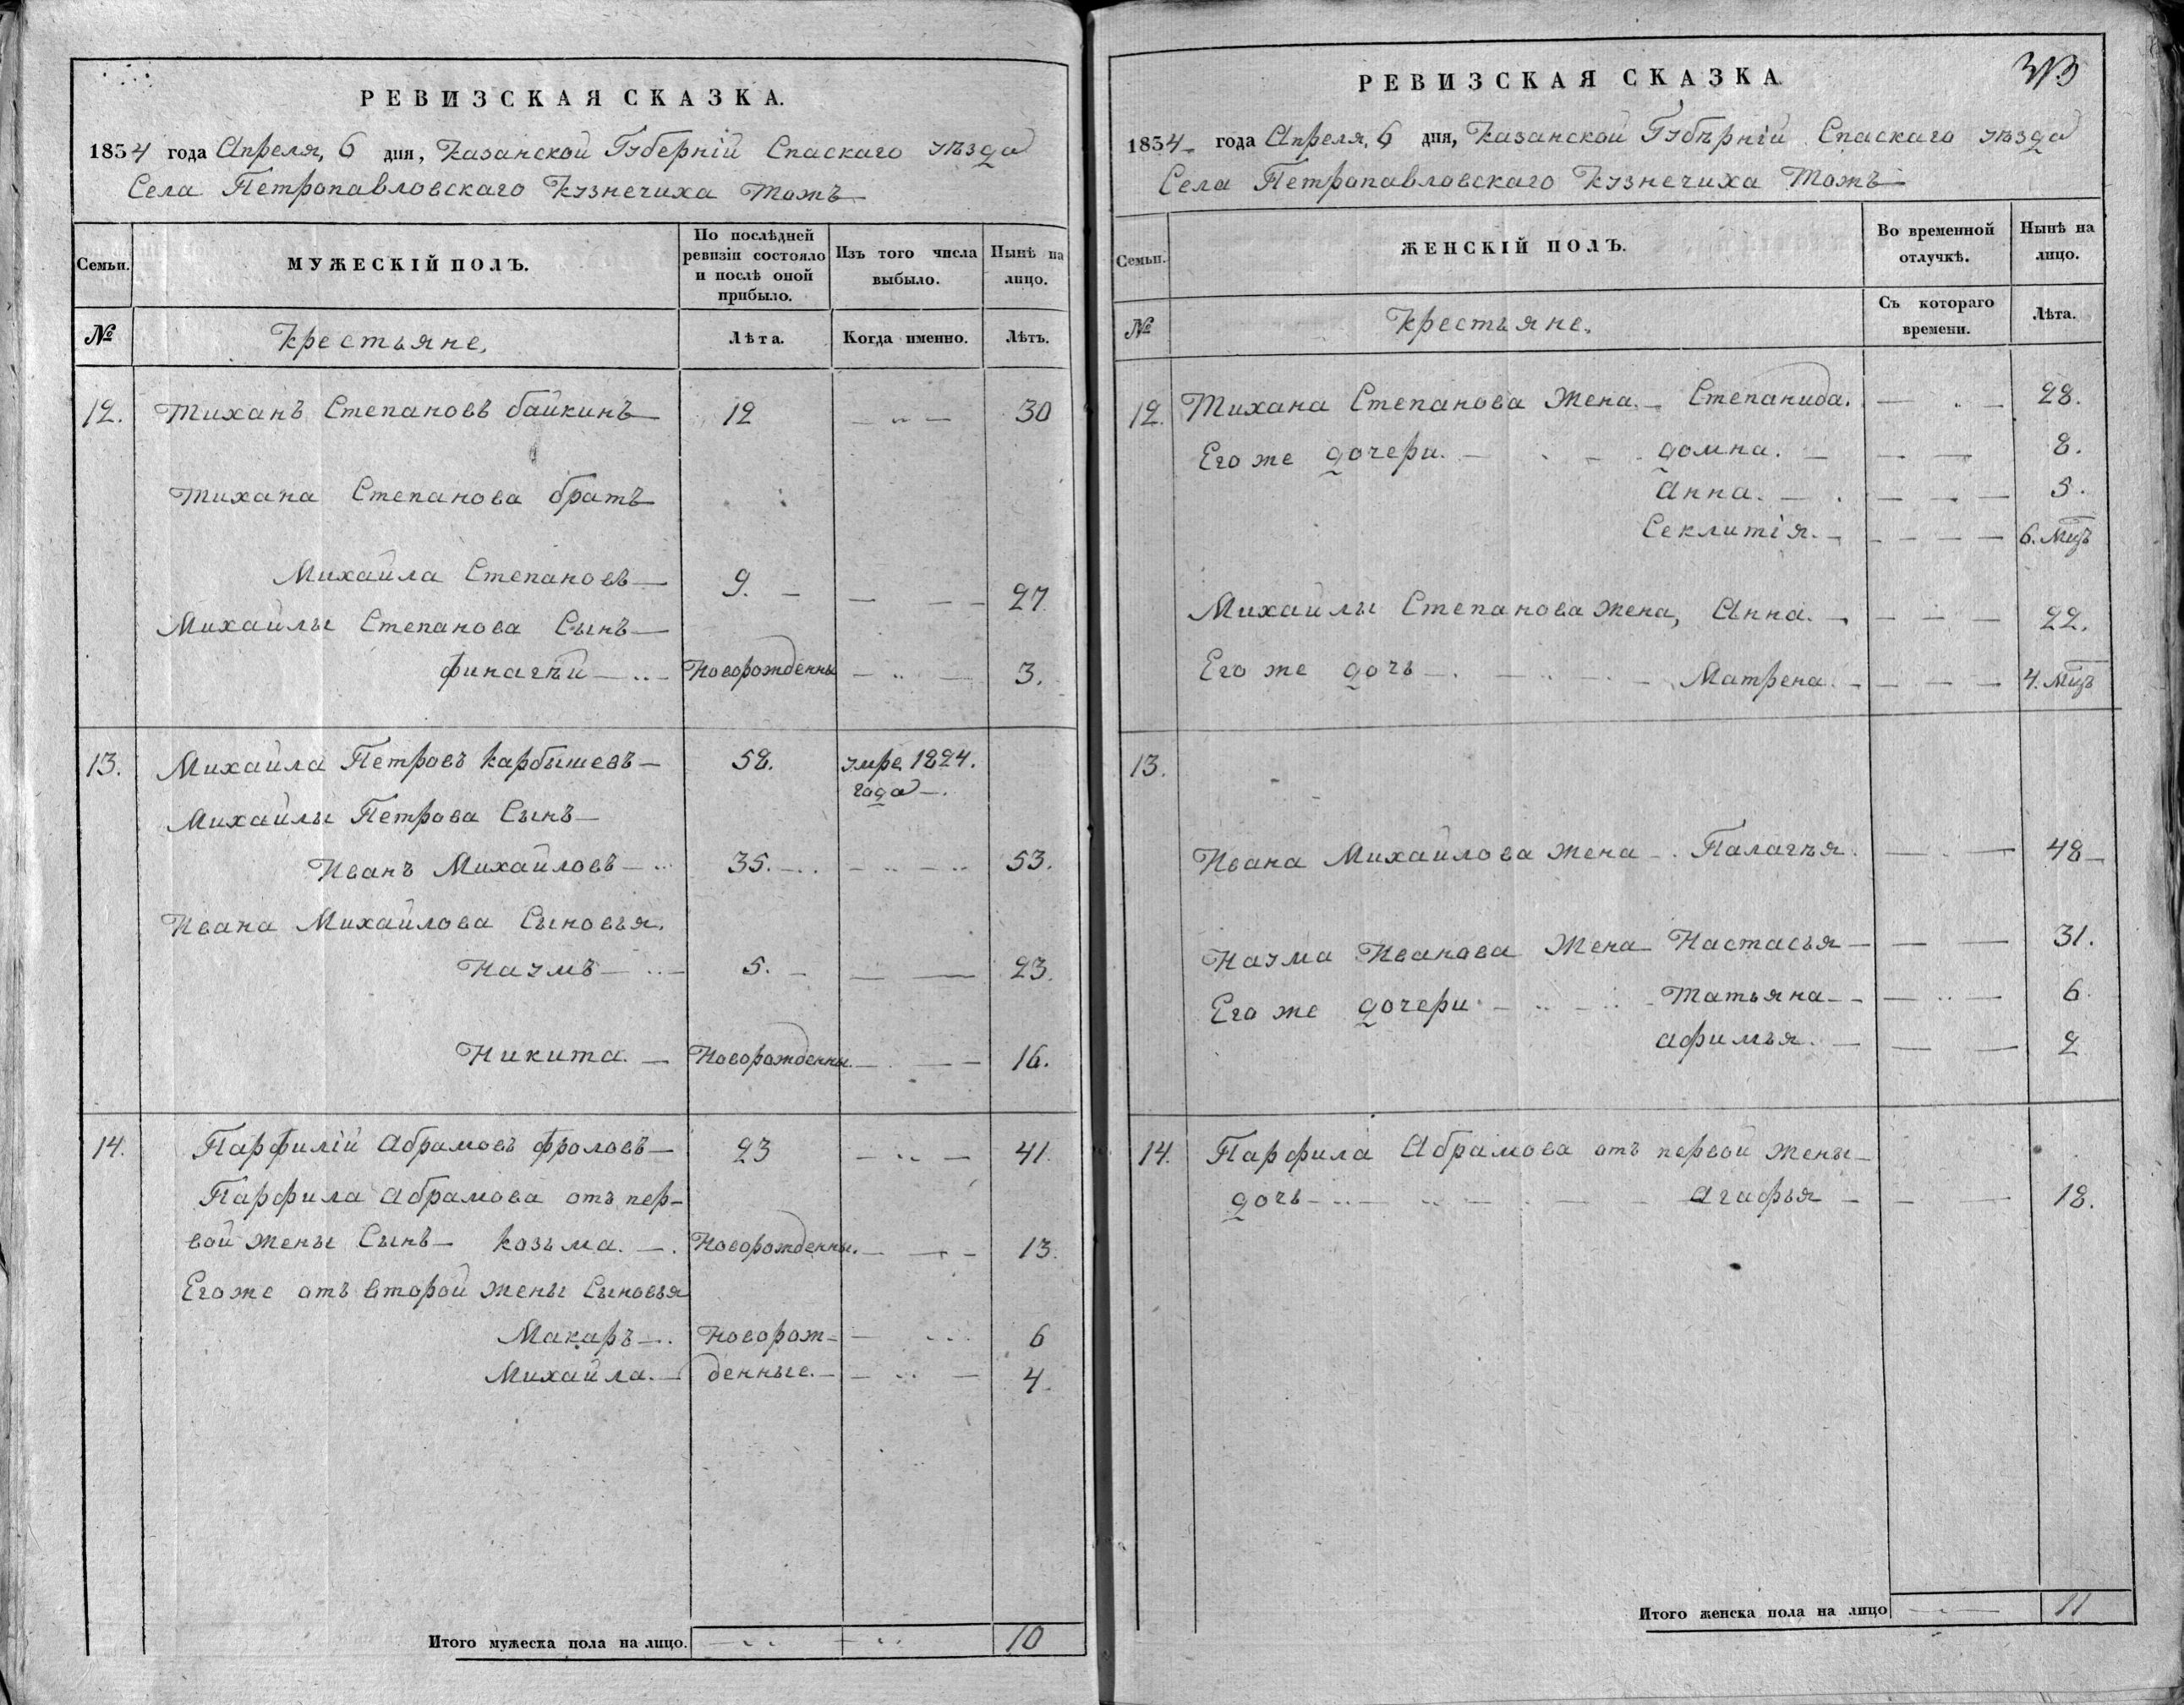 РЕВИЗСКАЯ СКАЗКА.
1834 года Апреля, 6 дня, Казанской Губерній Спаскаго уѣзда
Села Петропавловскаго Кузнечиха тожъ
Семьи.
МУЖЕСКІЙ ПОЛЪ.
По послѣдней ревизіи состояло и послѣ оной прибыло.
Изъ того числа выбыло.
Нынѣ на лицо.
№
Крестьяне.
Лѣта.
Когда именно.
Лѣтъ.
12. Тиханъ Степановъ байкинъ 12 30
Тихана Степанова братъ
Михайла Степановъ 9. 27
Михайлы Степанова Сынъ
финагѣй Новорожденны 3.
13. Михаила Петровъ Карбышевъ 58. умре 1824.
года
Михайлы Петрова Сынъ
Иванъ Михайловъ 35. 53.
Ивана Михайлова Сыновья.
Наумъ 5. 23.
Никита. Новорожденны. 16.
14. Парфилій Абрамовъ фроловъ 23 41.
Парфила Абрамова отъ пер-
вой жены Сынъ Козьма. Новорожденны. 13.
Егоже отъ второй жены Сыновья
Макаръ Новорож- 6
Михайла. денные. 4.
Итого мужеска пола на лицо. 10
РЕВИЗСКАЯ СКАЗКА
1834 года Апреля, 6 дня, Казанской Губѣрній Спаскаго уѣзда
Села Петропавловскаго Кузнечиха тожъ
Семьи.
ЖЕНСКІЙ ПОЛЪ.
Во временной отлучкѣ.
Нынѣ на лицо.
№
Крестьяне.
Съ котораго времени.
Лѣта.
12. Тихана Степанова жена. Степанида. 28.
Его же дочери. домна. 8.
Анна. 5.
Секлитія. 6. Мцъ
Михайлы Степанова жена, Анна. 22.
Его же дочь Матрена. 4. Мцъ
13.
Ивана Михайлова жена Палагѣя. 48
Наума Иванова Жена Настасья 31.
Его же дочери Татьяна 6.
афимья. 2
14. Парфила Абрамова отъ первой жены
дочь Агафья 18.
Итого женска пола на лицо 11